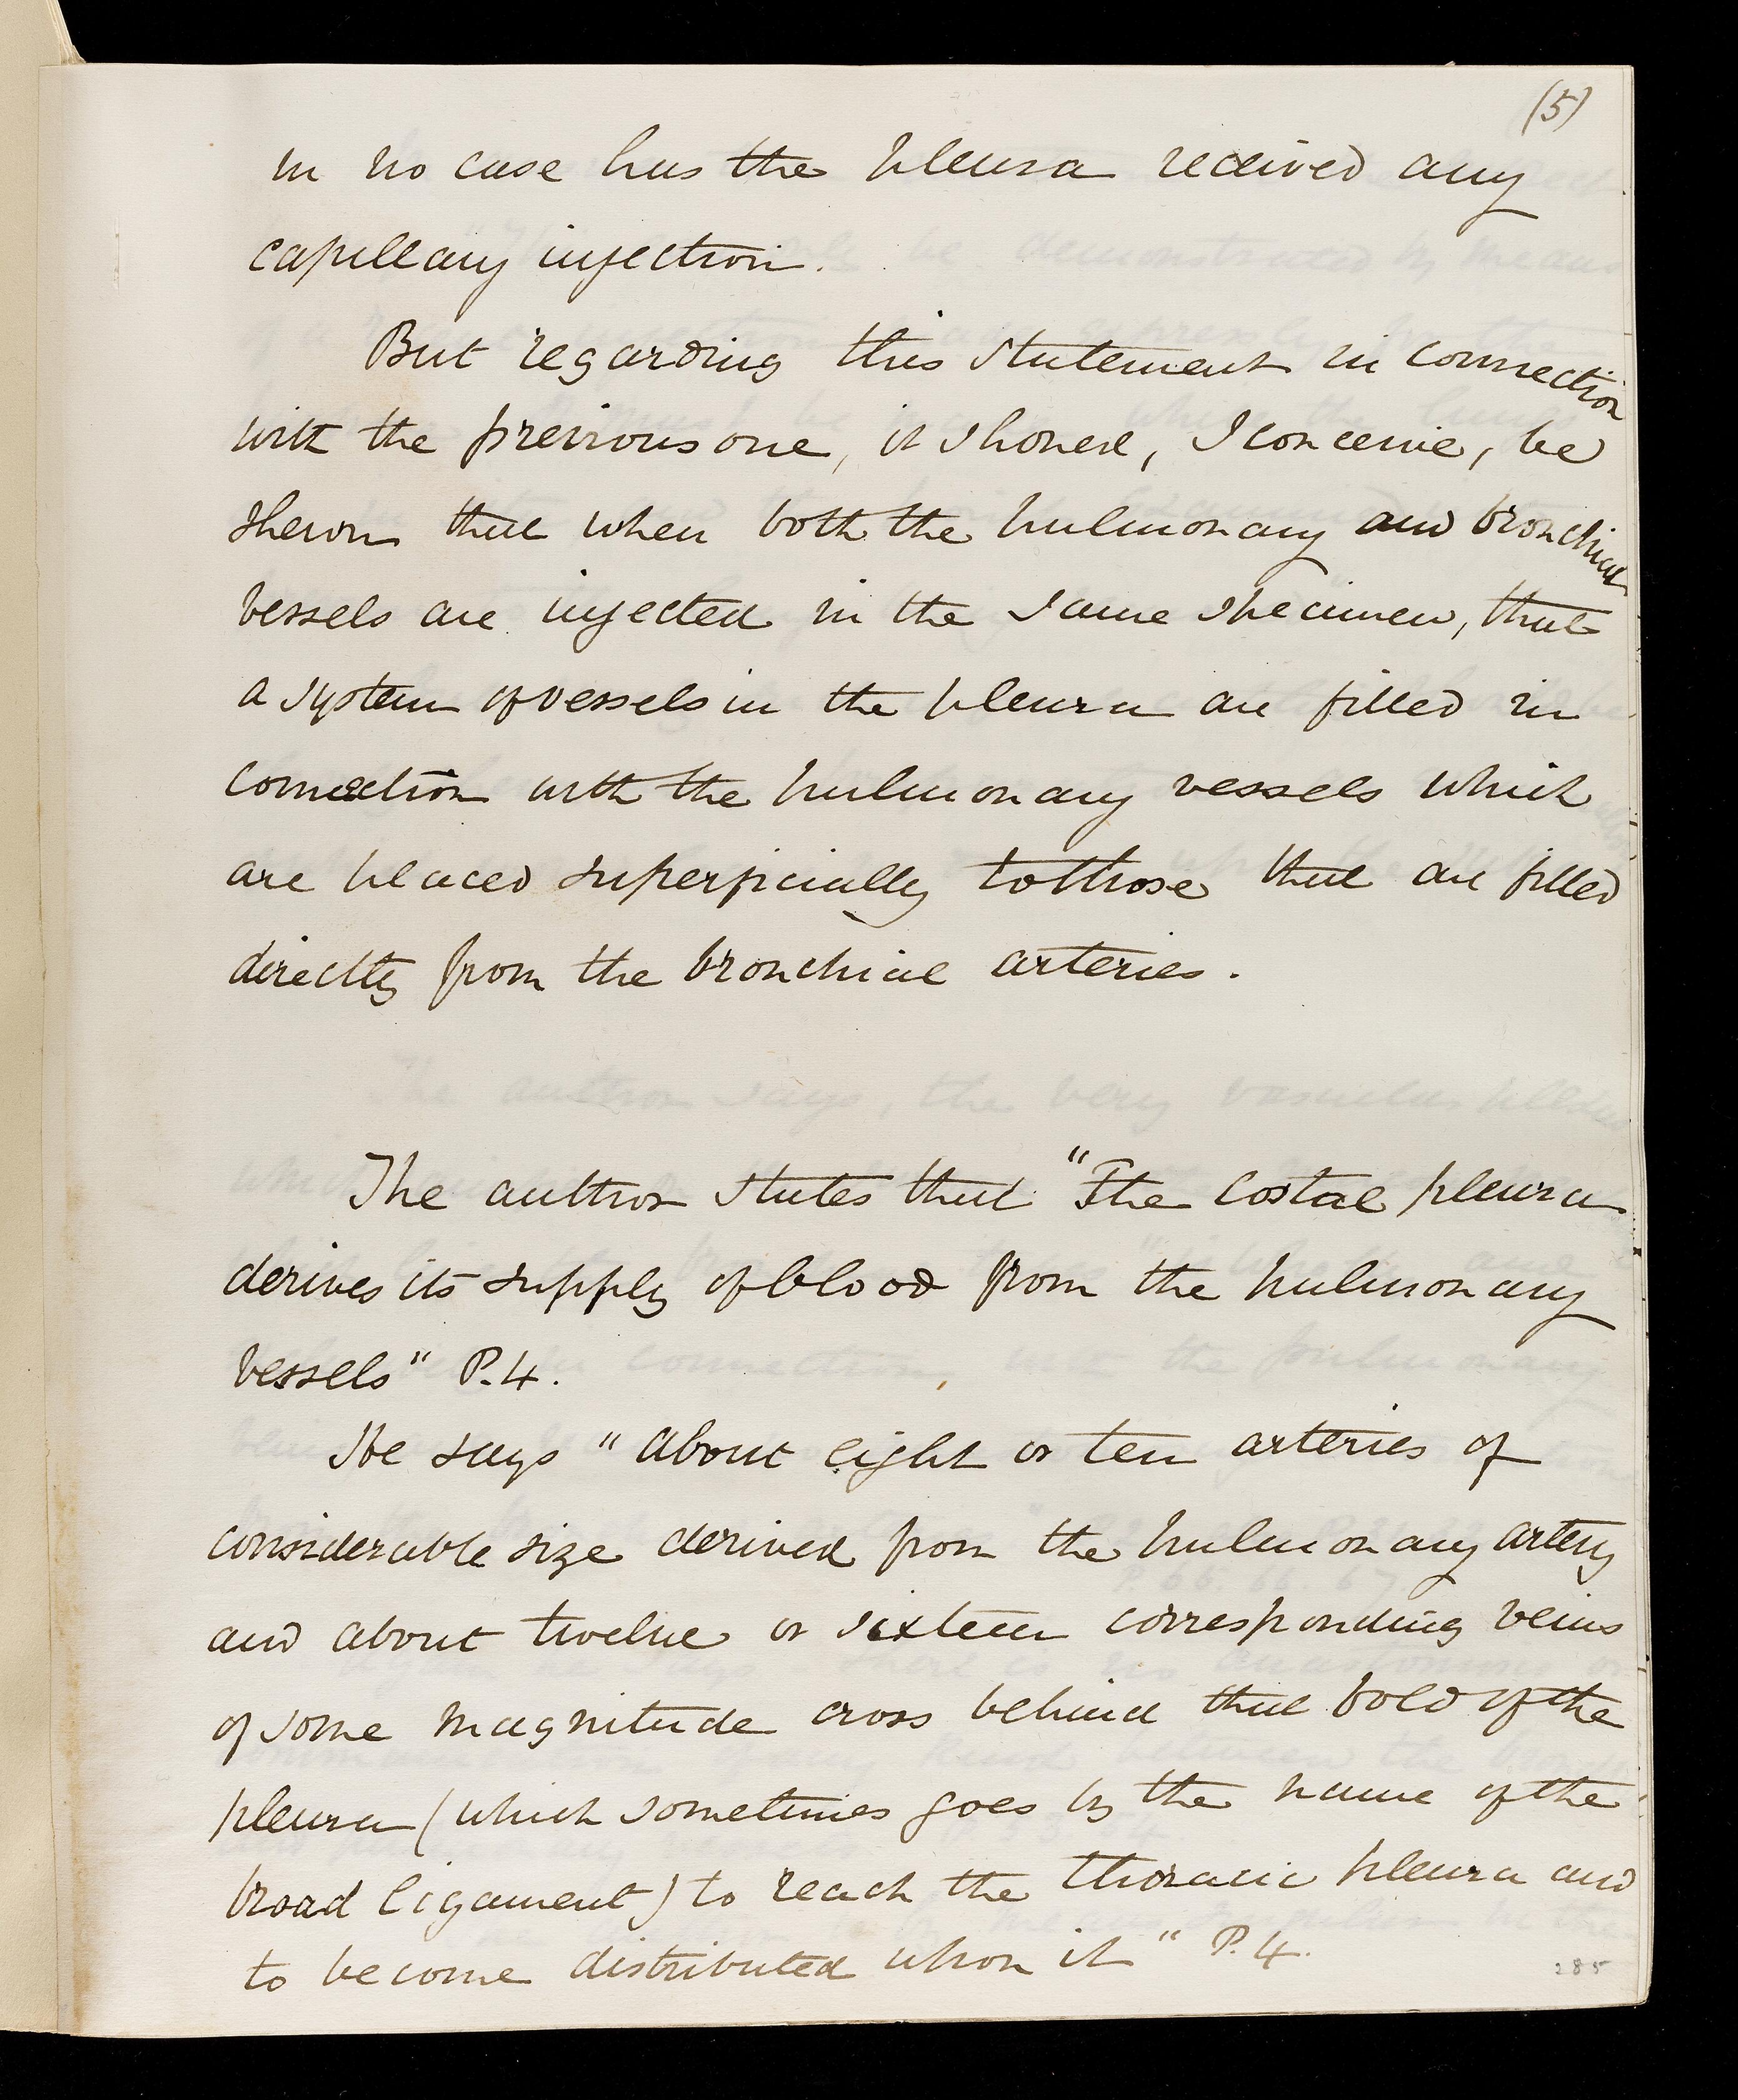 (5)
in no case has the pleura received any
capillary injection.
But regarding this statement in connection
with the previous one, it should, I conceive, be
shewn that when both the pulmonary and bronchial
vessels are injected in the same specimen, that
a system of vessels in the pleura are filled in
connection with the pulmonary vessels which
are placed superficially to those that are filled
directly from the bronchial arteries.
The author states that "The costal pleura
derives its supply of blood from the pulmonary
vessels" P. 4.
He says "about eight or ten arteries of
considerable size derived from the pulmonary artery
and about twelve or sixteen corresponding veins
of some magnitude cross behind that fold of the
pleura (which sometimes goes by the name of the
broad ligament) to reach the thoracic pleura and
to become distributed upon it" P. 4.
285